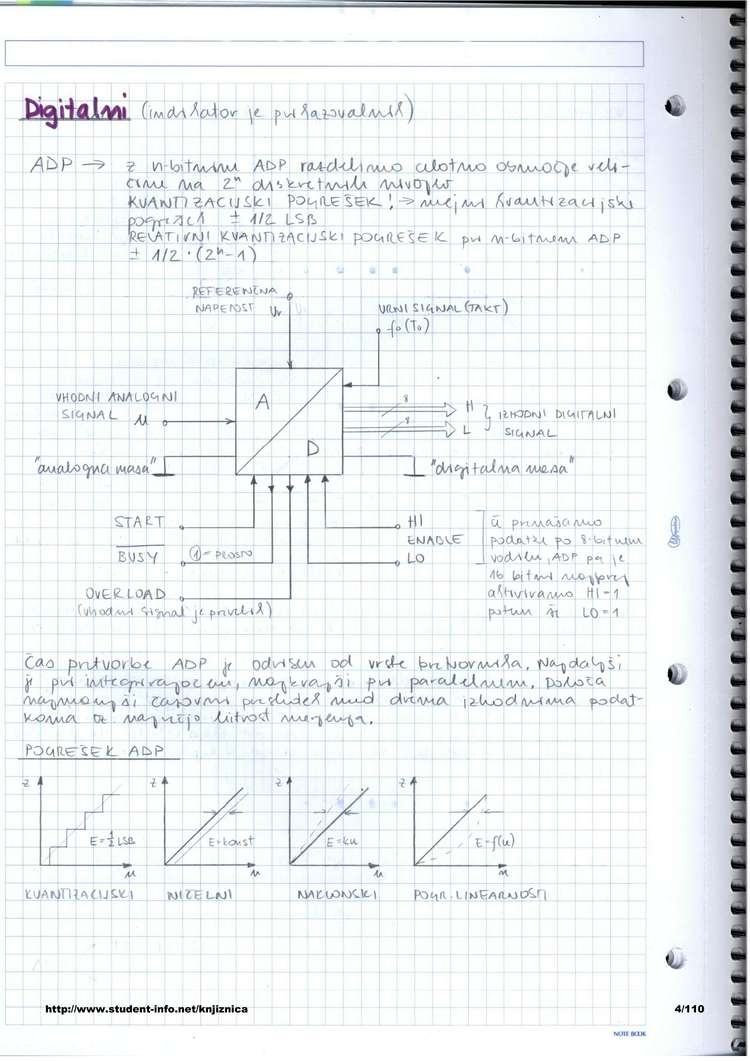 Digitalni (indikator je prikazovalnik)
ADP → z n-bitnim ADP razdelimo celotno območje veli-
čine na 2ⁿ diskretnih nivojev
KVANTIZACIJSKI POGREŠEK! → mejni kvantizacijski
pogrešek ± 1/2 LSB
RELATIVNI KVANTIZACIJSKI POGREŠEK pri n-bitnem ADP
± 1/2 · (2ⁿ-1)
REFERENČNA
NAPETOST Ur
URNI SIGNAL (TAKT)
f₀(T₀)
VHODNI ANALOGNI
SIGNAL u
A
D
8
8
H
L
IZHODNI DIGITALNI
SIGNAL
"analogna masa"
"digitalna masa"
START
BUSY 1 = PROSTO
OVERLOAD
(vhodni signal je prevelik)
HI
ENABLE
LO
če prenašamo
podatke po 8-bitnem
vodilu, ADP pa je
16 bitni najprej
aktiviramo HI=1
potem še LO=1
Čas pretvorbe ADP je odvisen od vrste pretvornika. Najdaljši
je pri integrirajočem, najkrajši pri paralelnem. Določa
najmanjši časovni presledek med dvema izhodnima podat-
koma oz. največjo hitrost merjenja.
POGREŠEK ADP
z
E=½LSB
u
z
E=konst
u
z
E=ku
u
z
E=f(u)
u
KVANTIZACIJSKI
NIČELNI
NAKLONSKI
POGR. LINEARNOSTI
http://www.student-info.net/knjiznica
4/110
NOTE BOOK